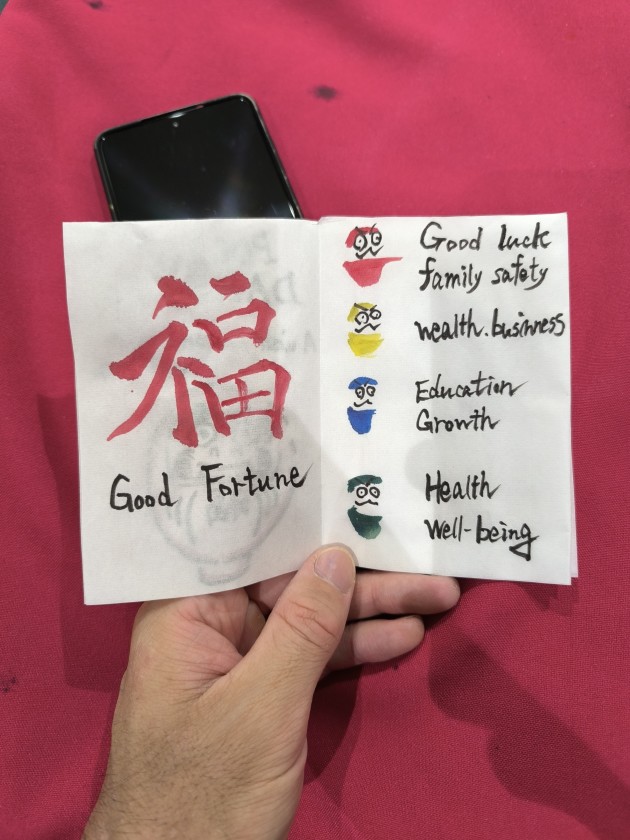 福
Good Fortune
Good luck
family safety
wealth.business
Education
Growth
Health
Well-being